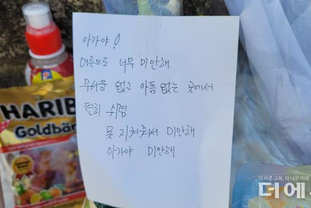 아가야!
어른으로 너무 미안해
무서움 없고 아픔 없는 곳에서
편히 쉬렴
못 지켜줘서 미안해
아가야 미안해
HARIB
Goldbär
더에